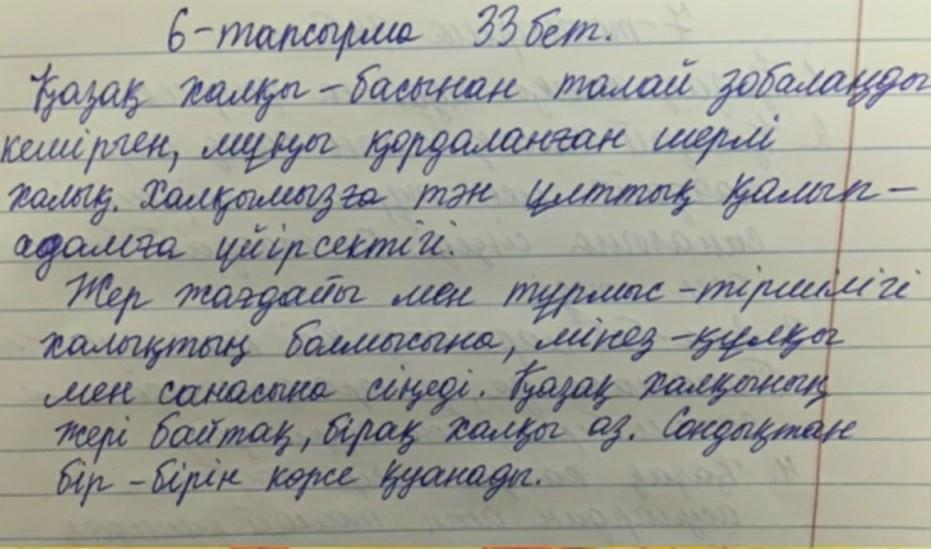 6-тапсырма 33бет.
Қазақ халқы – басынан талай зобалаңды
кешірген, мұңы қордаланған шерлі
халық. Халқымызға тән ұлттық қалып –
адамға үйірсектігі.
Жер жағдайы мен тұрмыс-тіршілігі
халықтың болмысына, мінез-құлқы
мен санасына сіңеді. Қазақ халқының
жері байтақ, бірақ халқы аз. Сондықтан
бір-бірін көрсе қуанады.